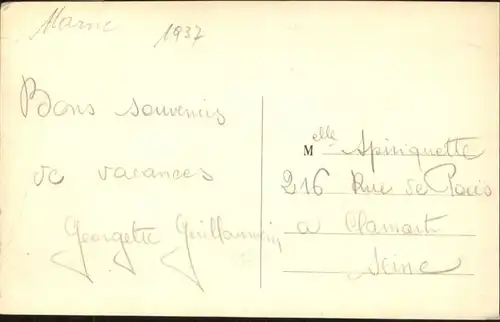 Marne 1937
Bons souvenirs
de vacances
Georgette Guillaumin
Melle Apiriquette
216 Rue de Paris
a Clamart
Seine